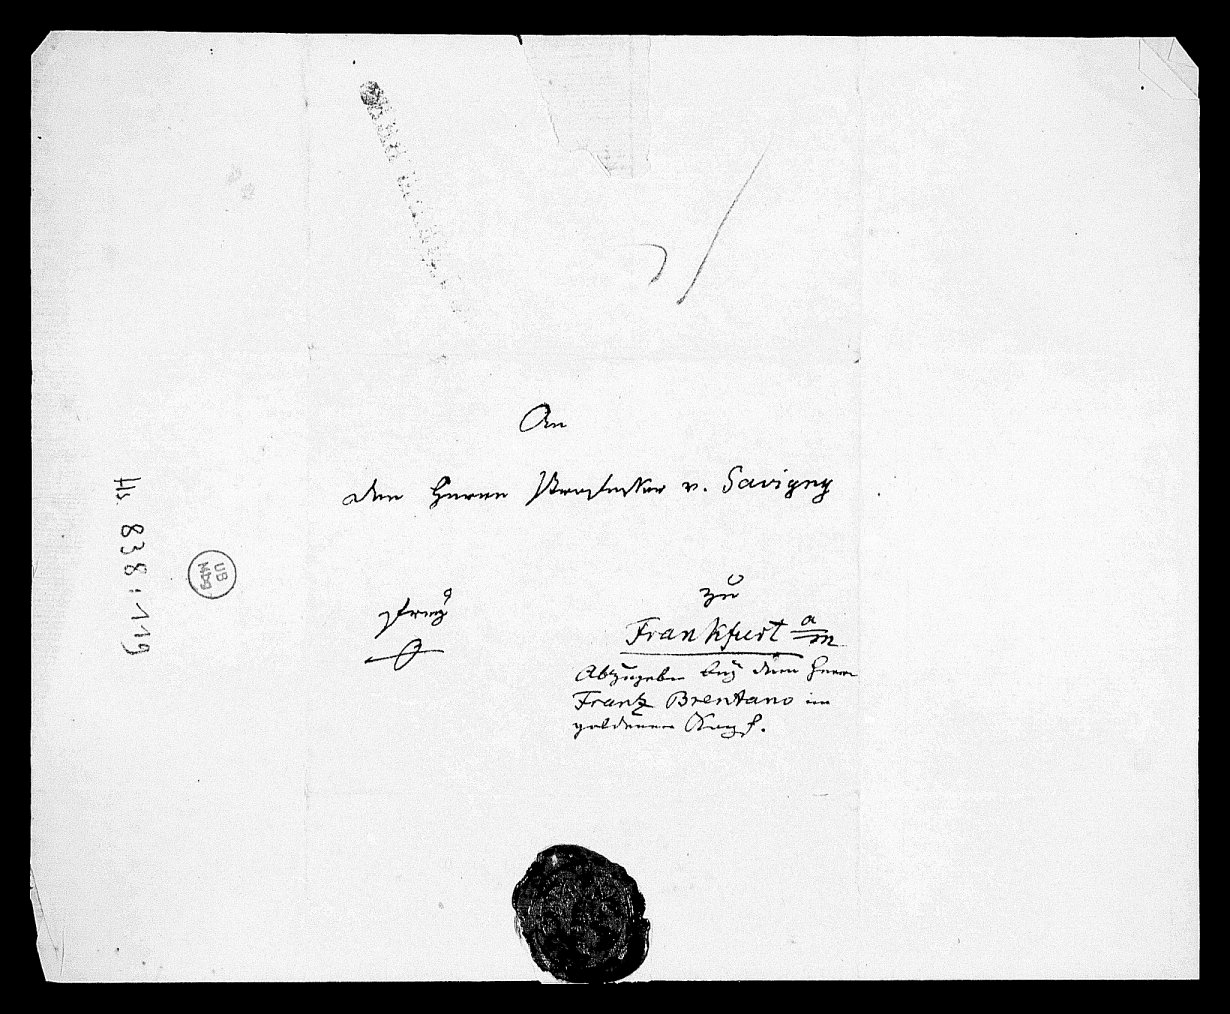 An
den Herrn Professor v. Savigny
frey
zu
Frankfurt a/m
Abzugeben bey dem Herrn
Frantz Brentano im
goldenen Kopf.
Hs 838:119
UB
Mbg